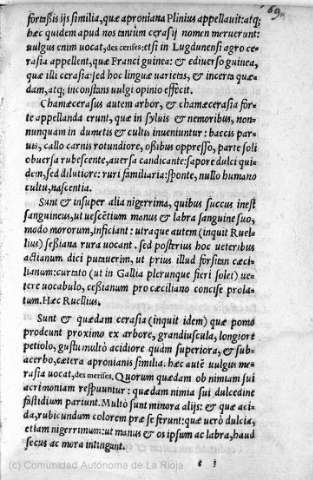 69
fortassis ijs similia, quæ aproniana Plinius appellauit: atq;
hæc quidem apud nos tantùm cerasij nomen meruerunt:
uulgus enim uocat, des cerises: etsi in Lugdunensi agro ce-
rasia appellent, quæ Franci guinea: & è diuerso guinea,
quæ illi cerasia: sed hoc linguæ uarietas, & incerta quæ-
dam, atq; inconstans uulgi opinio effecit.
Chamæcerasus autem arbor, & chamæcerasia for-
te appellanda erunt, quæ in syluis & nemoribus, non-
nunquam in dumetis & cultis inueniuntur: baccis par-
uis, callo carnis rotundiore, ossibus oppresso, parte soli
obuersa rubescente, auersa candicante: sapore dulci qui-
dem, sed dilutiore: ruri familiaria: sponte, nullo humano
cultu, nascentia.
Sunt & insuper alia nigerrima, quibus succus inest
sanguineus, ut uescētium manus & labra sanguine suo,
modo mororum, inficiant: utraque autem (inquit Ruel-
lius) sessiana rura uocant. sed posterius hoc ueteribus
actianum dici putuerim, ut prius illud forsitan cæci-
lianum: curtato (ut in Gallia plerunque fieri solet) ue-
tere uocabulo, cessianum pro cæciliano concise prola-
tum. Hæc Ruellius.
Sunt & quædam cerasia (inquit idem) quæ pomo
prodeunt proximo ex arbore, grandiuscula, longiore
petiolo, gustu multò acidiore quàm superiora, & sub-
acerbo, cætera apronianis similia. hæc autē uulgus me-
rasia uocat, des merises. Quorum quædam ob nimiam sui
acrimoniam respuuntur: quædam nimia sui dulcedine
fastidium pariunt. Multò sunt minora alijs: & quæ aci-
da, rubicundum colorem præ se ferunt: quæ uerò dulcia,
etiam nigerrimum: ut manus & os ipsum ac labra, haud
secus ac mora intingant.
(c) Comunidad Autónoma de La Rioja